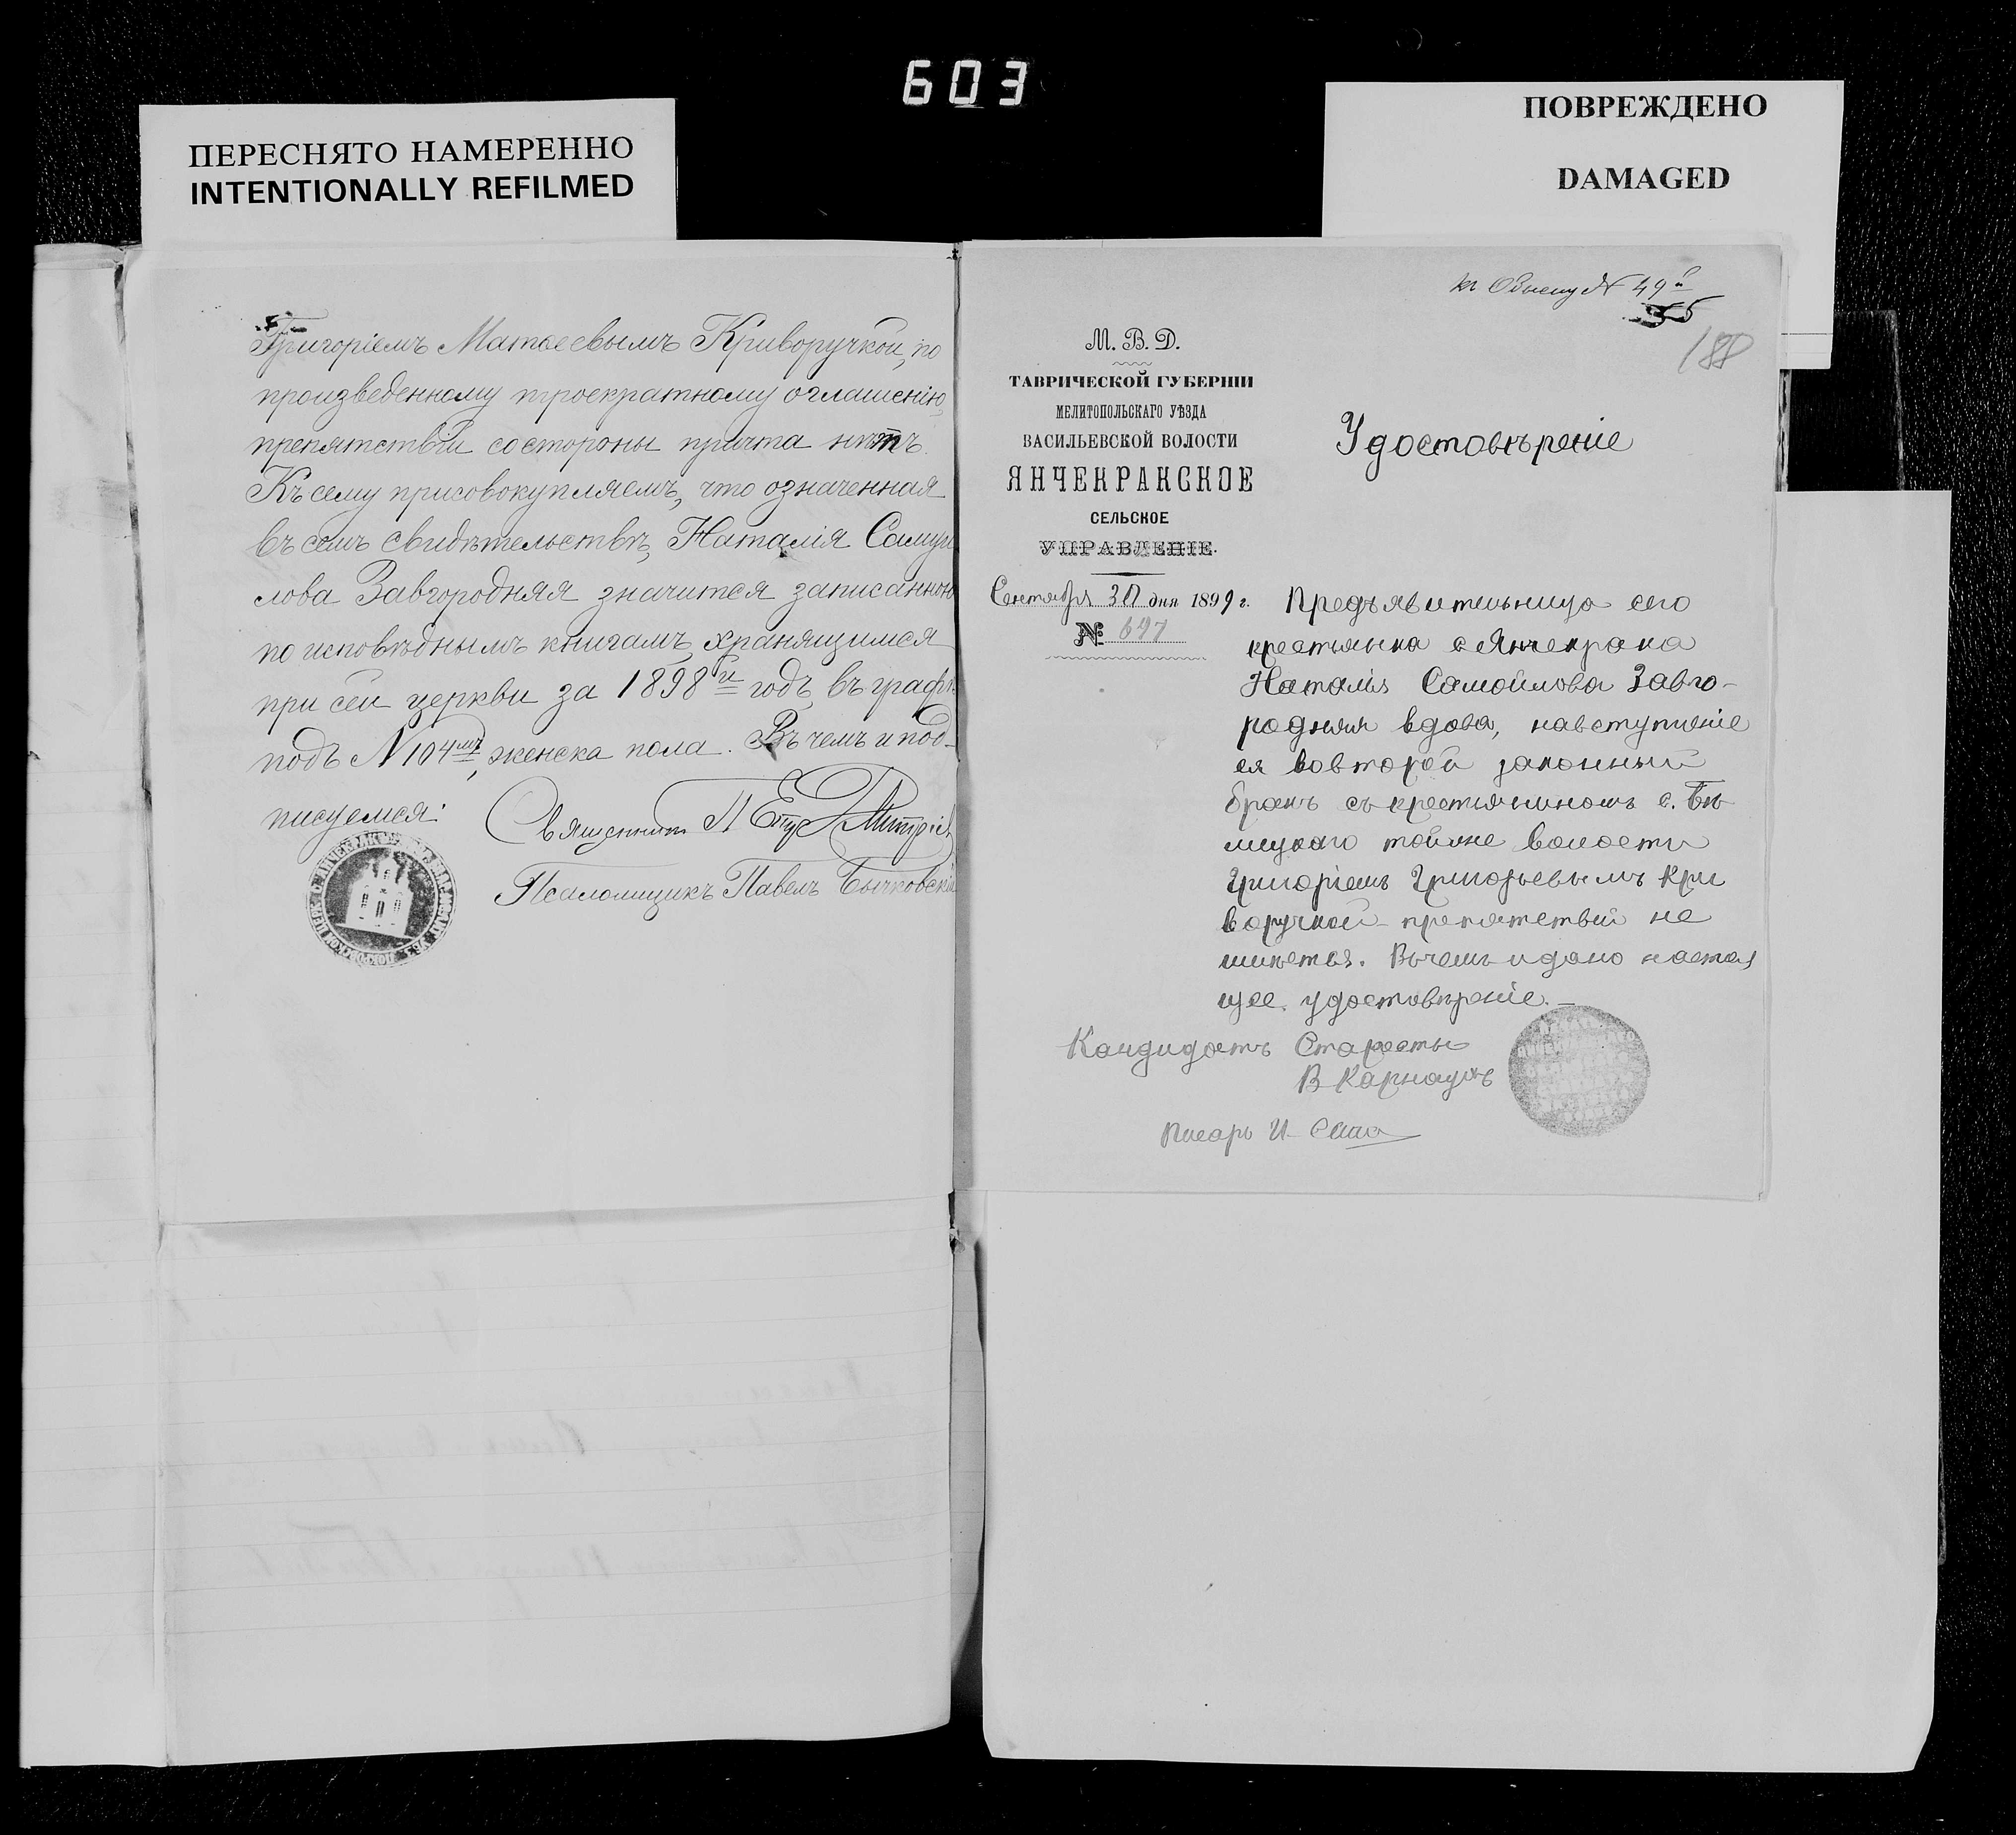 603
ПЕРЕСНЯТО НАМЕРЕННО
INTENTIONALLY REFILMED
ПОВРЕЖДЕНО
DAMAGED
Григоріемъ Матѳеевымъ Криворучкой, по
произведенному троекратному оглашенію,
препятствій со стороны причта нѣтъ.
Къ сему присовокупляемъ, что означенная
въ семъ свидѣтельствѣ, Наталія Самуи
лова Завгородняя значится записанною
по исповѣднымъ книгамъ, хранящимся
при сей церкви за 1898й годъ, въ графѣ
подъ N 104мъ, женска пола. Въ чемъ и под-
писуемся:
Священникъ П
Псаломщикъ Павелъ Бычковскій
къ Обыску № 49й
55
188
М. В. Д.
ТАВРИЧЕСКОЙ ГУБЕРНІИ
МЕЛИТОПОЛЬСКАГО УѢЗДА
ВАСИЛЬЕВСКОЙ ВОЛОСТИ
ЯНЧЕКРАКСКОЕ
СЕЛЬСКОЕ
УПРАВЛЕНІЕ.
Сентября 30 дня 1899 г.
№ 697
Удостовѣреніе
Предъявительница сего
крестьянка с Янчекрака
Наталія Самойлова Завго-
родняя вдова, навступленіе
ея вовторой законный
бракъ съ крестяниномъ с. Бѣ
лицкаго тойже волости
Григоріемъ Григорьевымъ Кри
воручкой препятствій не
имѣется. Вчемъ и дано настоя
щее удостовѣреніе.
Кандидатъ Старосты
В Карнаухъ
Писарь И